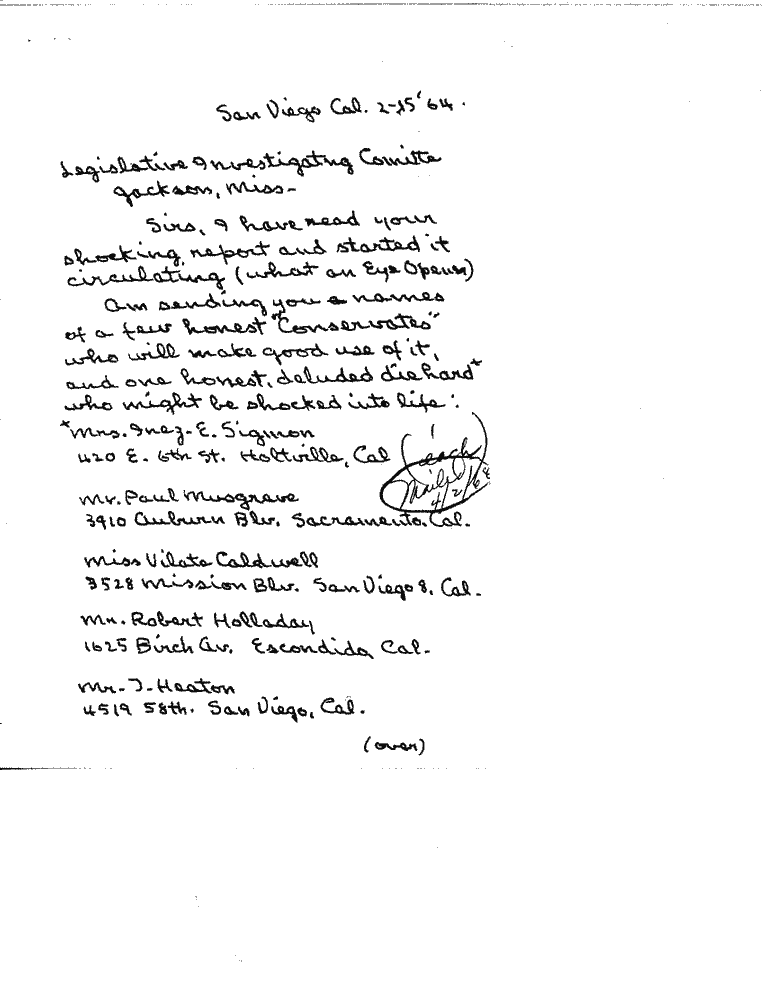 San Diego Cal. 2-25'64.
Legislative Investigating Comitte
Jackson, Miss-
Sirs, I have read your
shocking report and started it
circulating (what an Eye Opener)
Am sending you a names
of a few honest "Conservates"
who will make good use of it,
and one honest, deluded die hard*
who might be shocked into life:
*Mrs. Inez-E. Sigmon
420 E. 6th St. Holtville, Cal
(1 each)
Mailed
4/2/64
Mr. Paul Musgrave
3910 Auburn Blv. Sacramento. Cal.
Miss Vilate Caldwell
3528 Mission Blv. San Diego 8, Cal-
Mr. Robert Holladay
1625 Birch Av. Escondido, Cal-
Mr. J. Heaton
4519 58th. San Diego, Cal.
(over)